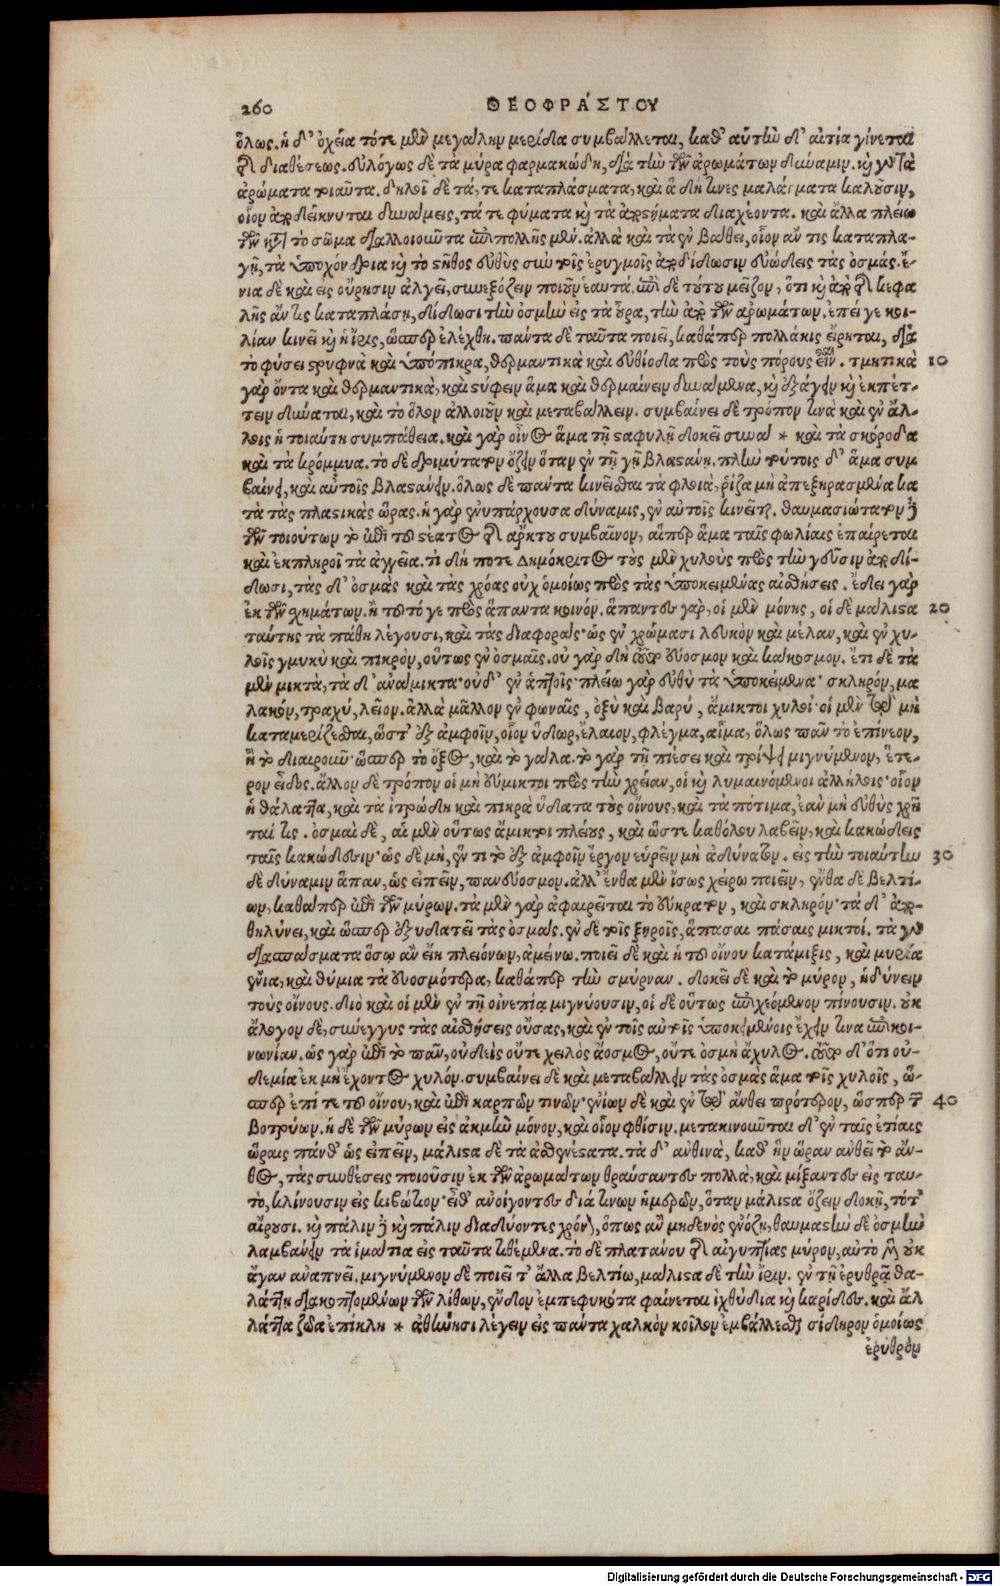 260 ΘΕΟΦΡΆΣΤΟΥ
ὅλως. ἡ δ' ὀχεία τότε μὲν μεγάλην μερίδα συμβάλλεται, καθ' αὑτὴν δ' αἰτία γίνεται
διαθέσεως. εὐλόγως δὲ τὰ μύρα φαρμακώδη, διὰ τὴν τῶν ἀρωμάτων δύναμιν. καὶ γὰρ τὰ
ἀρώματα τοιαῦτα. δηλοῖ δὲ τά, τε καταπλάσματα, καὶ ἃ δή τινες μαλάγματα καλοῦσιν,
οἷον ἀποδείκνυται δυνάμεις, τά τε φύματα καὶ τὰ ἀποστήματα διαχέοντα. καὶ ἄλλα πλείω
τῶν κατὰ τὸ σῶμα διαλλοιοῦντα ἐπιπολῆς μέν. ἀλλὰ καὶ τὰ ἐν βάθει, οἷον ἄν τις καταπλα-
γῇ, τὰ ὑποχόνδρια καὶ τὸ στῆθος εὐθὺς σὺν τοῖς ἐρυγμοῖς ἀποδίδωσιν εὐώδεις τὰς ὀσμάς. ἔ-
νια δὲ καὶ εἰς οὔρησιν ἀλγεῖ, συνεξόζειν ποιοῦν ἑαυτά. ἐπὶ δὲ τούτου μεῖζον, ὅτι καὶ ἀπὸ τῆς κεφα
λῆς ἄν τις καταπλάσῃ, δίδωσι τὴν ὀσμὴν εἰς τὰ οὖρα, τὴν ἀπὸ τῶν ἀρωμάτων. ἐπεί γε κοι-
λίαν κινεῖ καὶ ἡ ἶρις, ὥσπερ ἐλέχθη. πάντα δὲ ταῦτα ποιεῖ, καθάπερ πολλάκις εἴρηται, διὰ
τὸ φύσει στρυφνὰ καὶ ὑπόπικρα, θερμαντικὰ καὶ εὐθίοδα πρὸς τοὺς πόρους εἶναι. τμητικὰ 10
γὰρ ὄντα καὶ θερμαντικὰ, καὶ στύφειν ἅμα καὶ θερμαίνειν δυνάμενα, καὶ ἐξάγειν καὶ ἐκπέτ-
τειν δύναται, καὶ τὸ ὅλον ἀλλοιοῦν καὶ μεταβάλλειν. συμβαίνει δὲ τρόπον τινὰ καὶ ἐν ἄλ-
λοις ἡ τοιαύτη συμπάθεια. καὶ γὰρ οἶνος ἅμα τῇ σταφυλῇ δοκεῖ συνα * καὶ τὰ σκόροδα
καὶ τὰ κρόμμυα. τὸ δὲ δριμύτατον ὄζειν ὅταν ἐν τῇ γῇ βλαστάνῃ. πλὴν τούτοις δ' ἅμα συμ
βαίνει, καὶ αὐτοῖς βλαστάνειν. ὅλως δὲ πάντα κινεῖσθαι τὰ φλοιὰ, ῥίζα μὴ ἀπεξηρασμένα κα
τὰ τὰς πλαστικὰς ὥρας. ἡ γὰρ ἐνυπάρχουσα δύναμις, ἐν αὐτοῖς κινεῖται. θαυμασιώτατον δὲ
τῶν τοιούτων τὸ ἐπὶ τοῦ στέατος τῆς ἄρκτου συμβαῖνον, αἵπερ ἅμα ταῖς φωλίαις ἐπαίρεται
καὶ ἐκπληροῖ τὰ ἀγγεῖα. τί δή ποτε Δημόκριτος τοὺς μὲν χυλοὺς πρὸς τὴν γεῦσιν ἀποδί-
δωσι, τὰς δ' ὀσμὰς καὶ τὰς χρόας οὐχ ὁμοίως πρὸς τὰς ὑποκειμένας αἰσθήσεις. ἔδει γὰρ
ἐκ τῶν σχημάτων. ἢ τοῦτό γε πρὸς ἅπαντα κοινόν. ἅπαντες γὰρ, οἱ μὲν μόνης, οἱ δὲ μάλιστα 20
ταύτης τὰ πάθη λέγουσι, καὶ τὰς διαφοράς· ὡς ἐν χρώμασι λευκὸν καὶ μέλαν, καὶ ἐν χυ-
λοῖς γλυκὺ καὶ πικρὸν, οὕτως ἐν ὀσμαῖς. οὐ γὰρ δὴ εὔοσμον καὶ κάκοσμον. ἔτι δὲ τὰ
μὲν μικτὰ, τὰ δ' ἀνάμικτα· οὐδ' ἐν ἁπτοῖς· πλείω γὰρ εὐθὺ τὰ ὑποκείμενα· σκληρόν, μα
λακόν, τραχύ, λεῖον. ἀλλὰ μᾶλλον ἐν φωναῖς, ὀξὺ καὶ βαρύ, ἄμικτοι χυλοὶ· οἱ μὲν τῷ μὴ
καταμερίζεσθαι, ὥστ' ἐξ ἀμφοῖν, οἷον ὕδωρ, ἔλαιον, φλέγμα, αἷμα, ὅλως πᾶν τὸ ἐπίνεον,
ἢ τὸ διαιροῦν· ὥσπερ τὸ ὄξος, καὶ τὸ γάλα. τὸ γὰρ τῇ πιέσει καὶ τρίψει μιγνύμενον, ἕτε-
ρον εἶδος. ἄλλον δὲ τρόπον οἱ μὴ εὔμικτοι πρὸς τὴν χρείαν, οἱ καὶ λυμαινόμενοι ἀλλήλοις· οἷον
ἡ θάλαττα, καὶ τὰ ἰτρώδη καὶ πικρὰ ὕδατα τοὺς οἴνους, καὶ τὰ πότιμα, ἐὰν μὴ εὐθὺς χρῆ
ταί τις. ὀσμαὶ δὲ, αἱ μὲν οὕτως ἄμικτοι πλείους, καὶ ὥστε καθόλου λαβεῖν, καὶ κακώδεις
ταῖς κακώδεσιν· ὡς δὲ μὴ, ἕν τι τὸ ἐξ ἀμφοῖν ἔργον εὑρεῖν μὴ ἀδύνατον. εἰς τὴν τοιαύτην 30
δὲ δύναμιν ἅπαν, ὡς εἰπεῖν, πανεύοσμον. ἀλλ' ἔνθα μὲν ἴσως χείρω ποιεῖν, ἔνθα δὲ βελτί-
ων, καθάπερ ἐπὶ τῶν μύρων. τὰ μὲν γὰρ ἀφαιρεῖται τὸ εὔκρατον, καὶ σκληρόν· τὰ δ' ἀπο-
θηλύνει, καὶ ὥσπερ ἐξυδατεῖ τὰς ὀσμάς. ἐν δὲ τοῖς ξηροῖς, ἅπασαι πάσαις μικτοί. τὰ γὰρ
διαπάσματα ὅσῳ ἂν εἴη πλειόνων, ἀμείνω. ποιεῖ δὲ καὶ ἡ τοῦ οἴνου κατάμιξις, καὶ μυρία
ἔνια, καὶ θύμια τὰ εὐοσμότερα, καθάπερ τὴν σμύρναν. δοκεῖ δὲ καὶ τὸ μύρον, ἡδύνειν
τοὺς οἴνους. διὸ καὶ οἱ μὲν ἐν τῇ οἰνεπίᾳ μιγνύουσιν, οἱ δὲ οὕτως ἐπιχεόμενον πίνουσιν. οὐκ
ἄλογον δὲ, συνεγγυς τὰς αἰσθήσεις οὔσας, καὶ ἐν τοῖς αὐτοῖς ὑποκειμένοις ἔχειν τινα ἐπικοι-
νωνίαν. ὡς γὰρ ἐπὶ τὸ πᾶν, οὐδεὶς οὔτε χειλὸς ἄοσμος, οὔτε ὀσμὴ ἄχυλος. δ' ὅτι οὐ-
δεμία ἐκ μὴ ἔχοντος χυλόν. συμβαίνει δὲ καὶ μεταβάλλειν τὰς ὀσμὰς ἅμα τοῖς χυλοῖς, ὥ-
σπερ ἐπί τε τοῦ οἴνου, καὶ ἐπὶ καρπῶν τινῶν· ἐνίων δὲ καὶ ἐν τῷ ἄνθει πρότερον, ὥσπερ τῶν 40
βοτρύων. ἡ δὲ τῶν μύρων εἰς ἀκμὴν μόνον, καὶ οἷον φθίσιν. μετακινοῦνται δ' ἐν ταῖς ἐτίαις
ὥραις πάνθ' ὡς εἰπεῖν, μάλιστα δὲ τὰ ἀσθενέστατα. τὰ δ' ἀνθινὰ, καθ' ἣν ὥραν ἀνθεῖ τὸ ἄν-
θος, τὰς συνθέσεις ποιοῦσιν ἐκ τῶν ἀρωμάτων θραύσαντες πολλὰ, καὶ μίξαντες εἰς ταυ-
τὸ, κλίνουσιν εἰς κιβώτιον· εἶθ' ἀνοίγοντες διά τινων ἡμερῶν, ὅταν μάλιστα ὄζειν δοκῇ, τότ'
αἴρουσι. καὶ πάλιν δὲ καὶ πάλιν διαδύοντες χρόνον, ὅπως ἂν μηδενὸς ἐνόζῃ, θαυμαστὴν δὲ ὀσμὴν
λαμβάνειν τὰ ἱμάτια εἰς ταῦτα τιθέμενα. τὸ δὲ πλατάνου τῆς αἰγυπτίας μύρον, αὐτὸ μὲν οὐκ
ἄγαν ἀναπνεῖ. μιγνύμενον δὲ ποιεῖ τ' ἄλλα βελτίω, μάλιστα δὲ τὴν ἶριν. ἐν τῇ ἐρυθρᾷ θα-
λάττῃ διακοπτομένων τῶν λίθων, ἔνδον ἐμπεφυκότα φαίνεται ἰχθύδια καὶ καρίδες. καὶ ἄλ
λάττα ζῶα ἐπίκλη * ἀθήνησι λέγειν εἰς πάντα χαλκὸν κοῖλον ἐμβάλλεσθαι σίδηρον ὁμοίως
ἐρυθρὸν
Digitalisierung gefördert durch die Deutsche Forschungsgemeinschaft - DFG